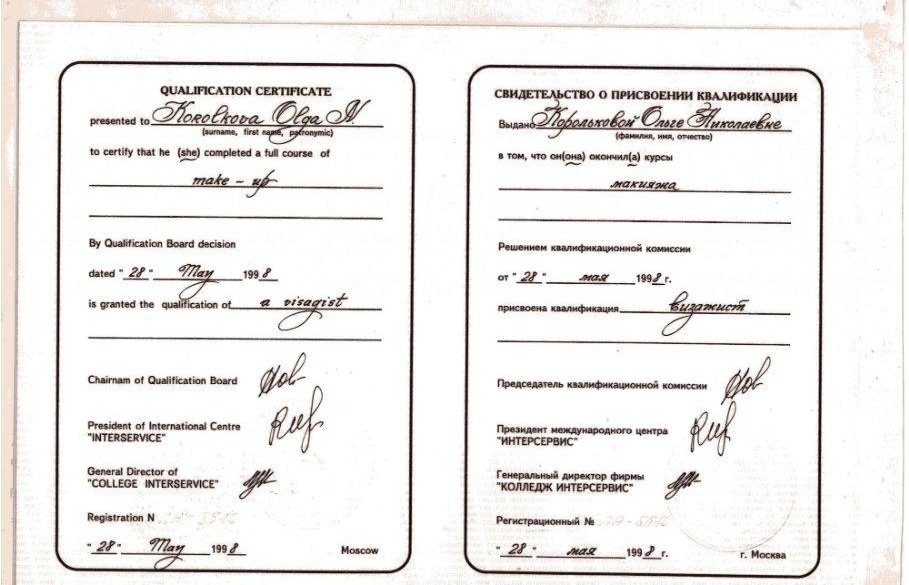 QUALIFICATION CERTIFICATE
presented to Korolkova Olga N.
(surname, first name, patronymic)
to certify that he (she) completed a full course of
make-up
By Qualification Board decision
dated "28" May 1998
is granted the qualification of a visagist
Chairnam of Qualification Board
President of International Centre
"INTERSERVICE"
General Director of
"COLLEGE INTERSERVICE"
Registration N
"28" May 1998 Moscow
СВИДЕТЕЛЬСТВО О ПРИСВОЕНИИ КВАЛИФИКАЦИИ
Выдано Корольковой Ольге Николаевне
(фамилия, имя, отчество)
в том, что он(она) окончил(а) курсы
макияжа
Решением квалификационной комиссии
от "28" мая 1998 г.
присвоена квалификация визажист
Председатель квалификационной комиссии
Президент международного центра
"ИНТЕРСЕРВИС"
Генеральный директор фирмы
"КОЛЛЕДЖ ИНТЕРСЕРВИС"
Регистрационный №
"28" мая 1998 г. г. Москва